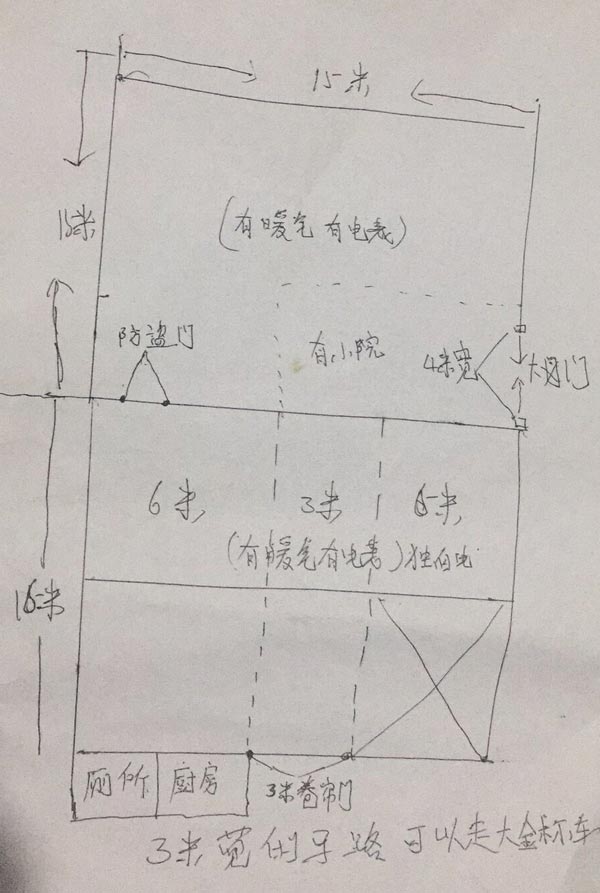 15米
15米
(有暖气 有电表)
防盗门
有小院
4米宽
大门
6米
3米
6米
(有暖气有电表)独立电
15米
厕所
厨房
3米卷帘门
3米宽 路 可以走大 车